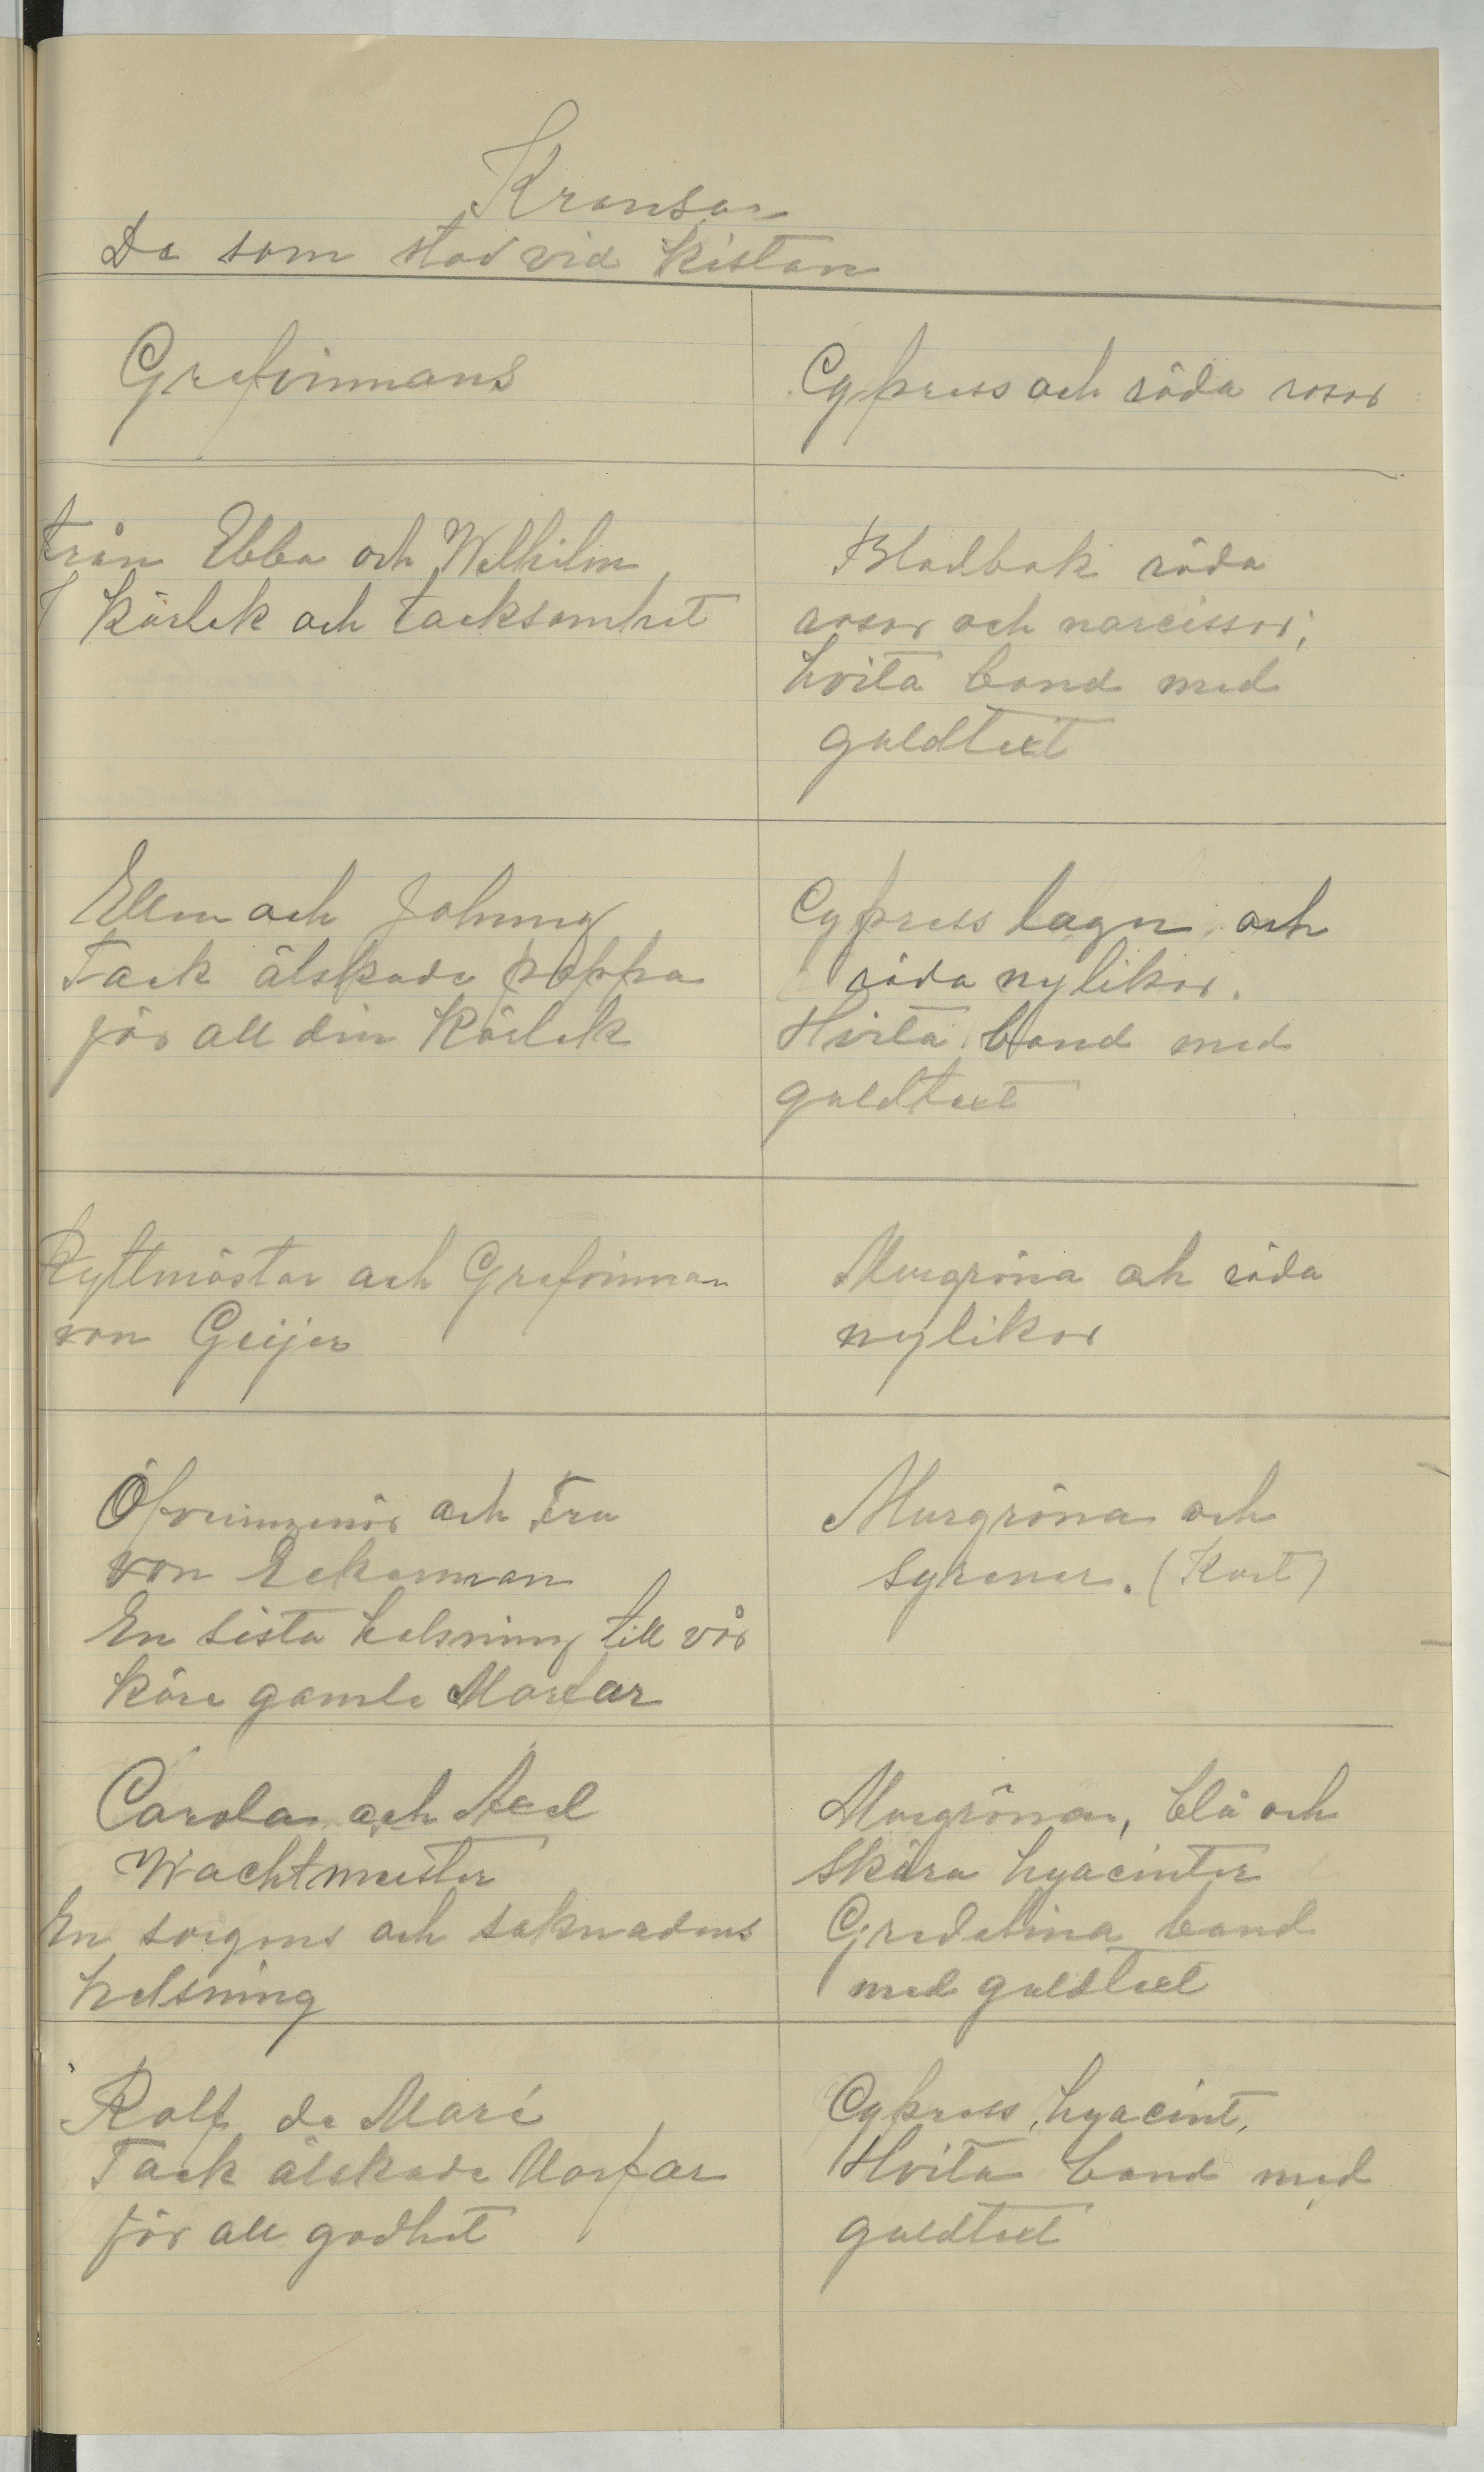 Kransar
De som stod vid kistan
Grefvinnans
Cypress och röda rosor
Från Ebba och Welhilm
I kärlek och tacksamhet
Blodbok röda
rosor och narcissor;
hvita band med
guldtext
Ellen och Johnny
Tack älskade pappa
för all din kärlek
Cypress lager och
röda nejlikor.
Hvita band med
guldtext
Ryttmästar och Grefvinnan
von Geijer
Murgröna och röda
nejlikor
och Fru
von Eckerman
En sista helsning till vår
käre gamle Morfar
Murgröna och
syrener. (Kort)
Carola och Axel
Wachtmeister
En sorgens och saknadens
helsning
Murgröna, blå och
skära hyacinter
Gredelina band
med guldtext
Rolf de Maré
Tack älskade Morfar
för all godhet
Cypress, hyacint,
Hvita band med
guldtext